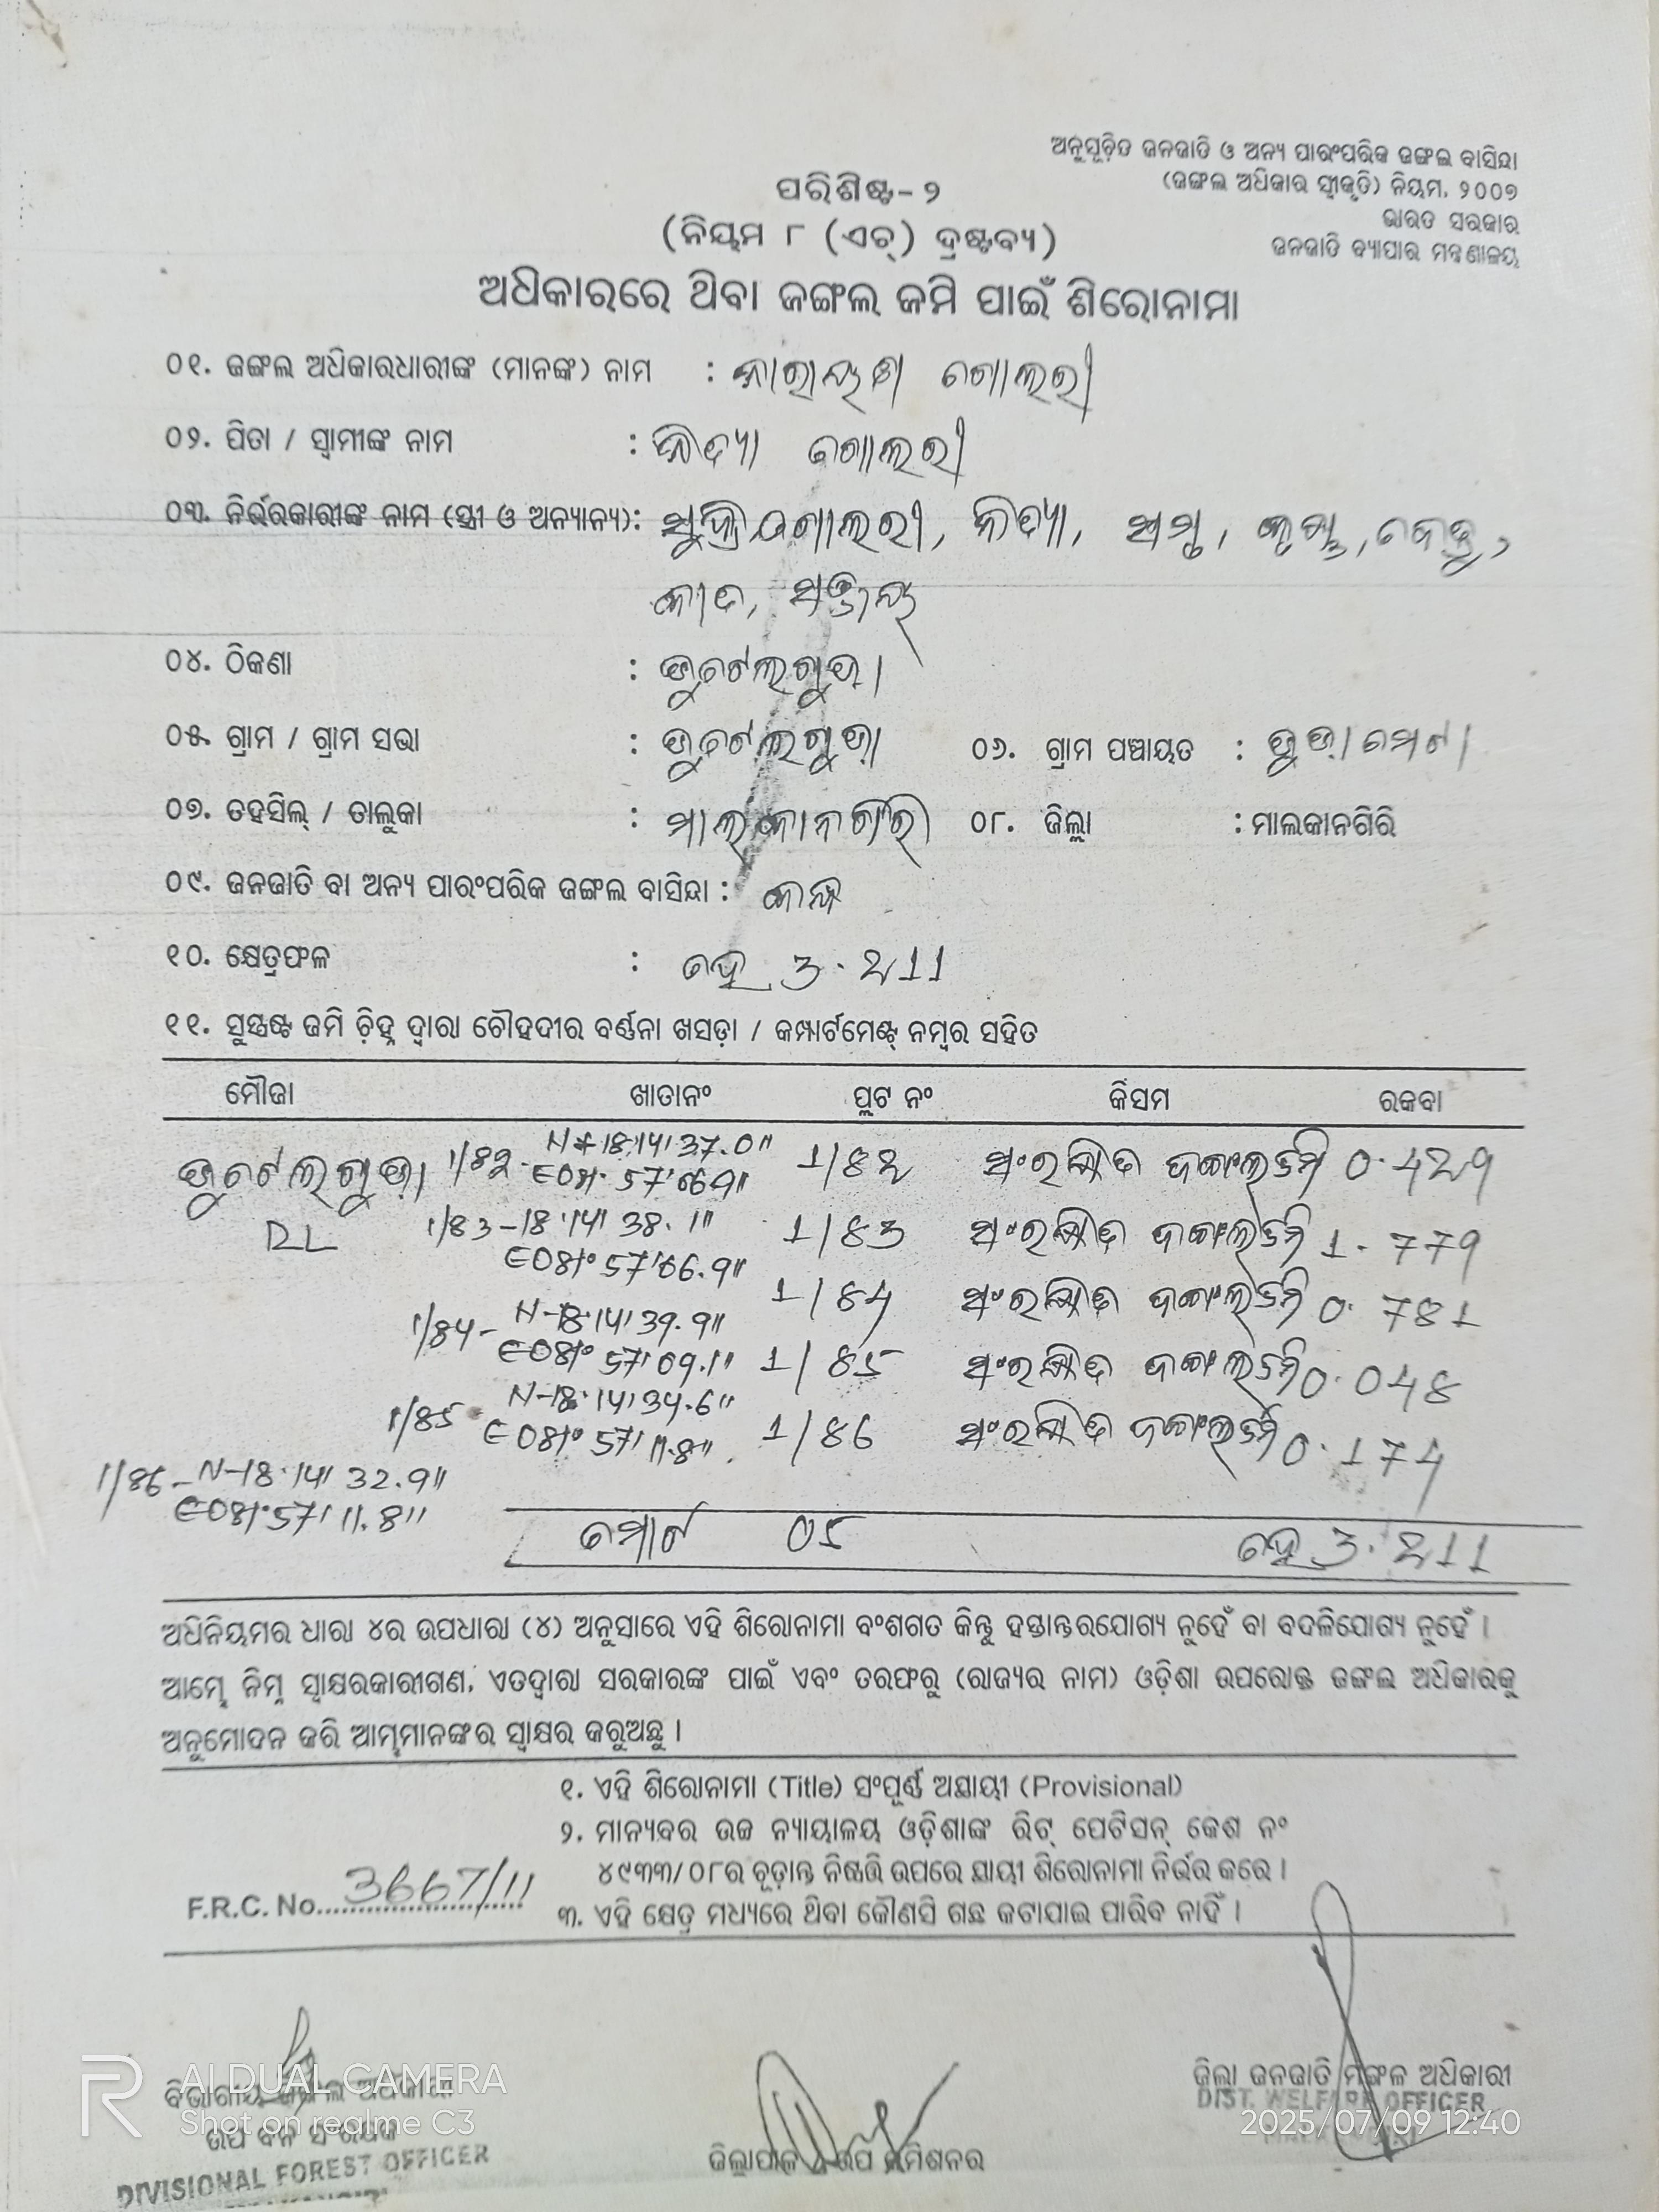 ଅନୁସୂଚିତ ଜନଜାତି ଓ ଅନ୍ୟ ପାରଂପରିକ ଜଙ୍ଗଲ ବାସିନ୍ଦା
(ଜଙ୍ଗଲ ଅଧିକାର ସ୍ୱୀକୃତି) ନିୟମ, ୨୦୦୭
ଭାରତ ସରକାର
ଜନଜାତି ବ୍ୟାପାର ମନ୍ତ୍ରଣାଳୟ
ପରିଶିଷ୍ଟ-୨
(ନିୟମ ୮ (ଏଚ୍) ଦ୍ରଷ୍ଟବ୍ୟ)
ଅଧିକାରରେ ଥିବା ଜଙ୍ଗଲ ଜମି ପାଇଁ ଶିରୋନାମା
୦୧. ଜଙ୍ଗଲ ଅଧିକାରଧାରୀଙ୍କ (ମାନଙ୍କ) ନାମ : ନାରାୟଣ ଗୋଲରୀ
୦୨. ପିତା / ସ୍ୱାମୀଙ୍କ ନାମ : ଗୋଲରୀ
୦୩. ନିର୍ଭରକାରୀଙ୍କ ନାମ (ସ୍ତ୍ରୀ ଓ ଅନ୍ୟାନ୍ୟ):
୦୪. ଠିକଣା : ଭୁଟେଲଗୁଡ଼ା
୦୫. ଗ୍ରାମ / ଗ୍ରାମ ସଭା : ଭୁଟେଲଗୁଡ଼ା ୦୬. ଗ୍ରାମ ପଞ୍ଚାୟତ :
୦୭. ତହସିଲ୍ / ତାଲୁକା : ମାଲକାନଗିରି ୦୮. ଜିଲ୍ଲା : ମାଲକାନଗିରି
୦୯. ଜନଜାତି ବା ଅନ୍ୟ ପାରଂପରିକ ଜଙ୍ଗଲ ବାସିନ୍ଦା :
୧୦. କ୍ଷେତ୍ରଫଳ : ହେ 3.211
୧୧. ସୁସ୍ପଷ୍ଟ ଜମି ଚିହ୍ନ ଦ୍ୱାରା ଚୌହଦୀର ବର୍ଣ୍ଣନା ଖସଡ଼ା / କମ୍ପାର୍ଟମେଣ୍ଟ୍ ନମ୍ବର ସହିତ
ମୌଜା ଖାତାନଂ ପ୍ଲଟ ନଂ କିସମ ରକବା
ଭୁଟେଲଗୁଡ଼ା 1/82 - N 18°14' 37.0" 1/82 ସଂରକ୍ଷିତ ଜଙ୍ଗଲଜମି 0.429
E081° 57'
RL 1/83 - 18°14' 38.1" 1/83 ସଂରକ୍ଷିତ ଜଙ୍ଗଲଜମି 1.779
E081° 57'
1/84 - N-18°14' 39.9" 1/84 ସଂରକ୍ଷିତ ଜଙ୍ଗଲଜମି 0.781
E081° 57' 09.1" 1/85 ସଂରକ୍ଷିତ ଜଙ୍ଗଲଜମି 0.048
1/85 N-18°14' 34.6"
E081° 57' 11.8" 1/86 ସଂରକ୍ଷିତ ଜଙ୍ଗଲଜମି 0.174
1/86 - N-18°14' 32.9"
E081° 57' 11.8"
ମୋଟ 05 ହେ 3.211
ଅଧିନିୟମର ଧାରା ୪ର ଉପଧାରା (୪) ଅନୁସାରେ ଏହି ଶିରୋନାମା ବଂଶଗତ କିନ୍ତୁ ହସ୍ତାନ୍ତରଯୋଗ୍ୟ ନୁହେଁ ବା ବଦଳିଯୋଗ୍ୟ ନୁହେଁ ।
ଆମ୍ଭେ ନିମ୍ନ ସ୍ୱାକ୍ଷରକାରୀଗଣ, ଏତଦ୍ୱାରା ସରକାରଙ୍କ ପାଇଁ ଏବଂ ତରଫରୁ (ରାଜ୍ୟର ନାମ) ଓଡ଼ିଶା ଉପରୋକ୍ତ ଜଙ୍ଗଲ ଅଧିକାରକୁ
ଅନୁମୋଦନ କରି ଆମ୍ଭମାନଙ୍କର ସ୍ୱାକ୍ଷର କରୁଅଛୁ ।
୧. ଏହି ଶିରୋନାମା (Title) ସଂପୂର୍ଣ୍ଣ ଅସ୍ଥାୟୀ (Provisional)
୨. ମାନ୍ୟବର ଉଚ୍ଚ ନ୍ୟାୟାଳୟ ଓଡ଼ିଶାଙ୍କ ରିଟ୍ ପେଟିସନ୍ କେଶ ନଂ
୪୯୩୩/୦୮ର ଚୂଡ଼ାନ୍ତ ନିଷ୍ପତ୍ତି ଉପରେ ସ୍ଥାୟୀ ଶିରୋନାମା ନିର୍ଭର କରେ ।
F.R.C. No. 3667/11
୩. ଏହି କ୍ଷେତ୍ର ମଧ୍ୟରେ ଥିବା କୌଣସି ଗଛ କଟାଯାଇ ପାରିବ ନାହିଁ ।
ବିଭାଗୀୟ ଜଙ୍ଗଲ ଅଧିକାରୀ
ଉପ ବନ ସଂରକ୍ଷକ
DIVISIONAL FOREST OFFICER
ଜିଲ୍ଲାପାଳ ଉପ କମିଶନର
ଜିଲ୍ଲା ଜନଜାତି ମଙ୍ଗଳ ଅଧିକାରୀ
DIST. WELFARE OFFICER
AI DUAL CAMERA
Shot on realme C3
2025/07/09 12:40